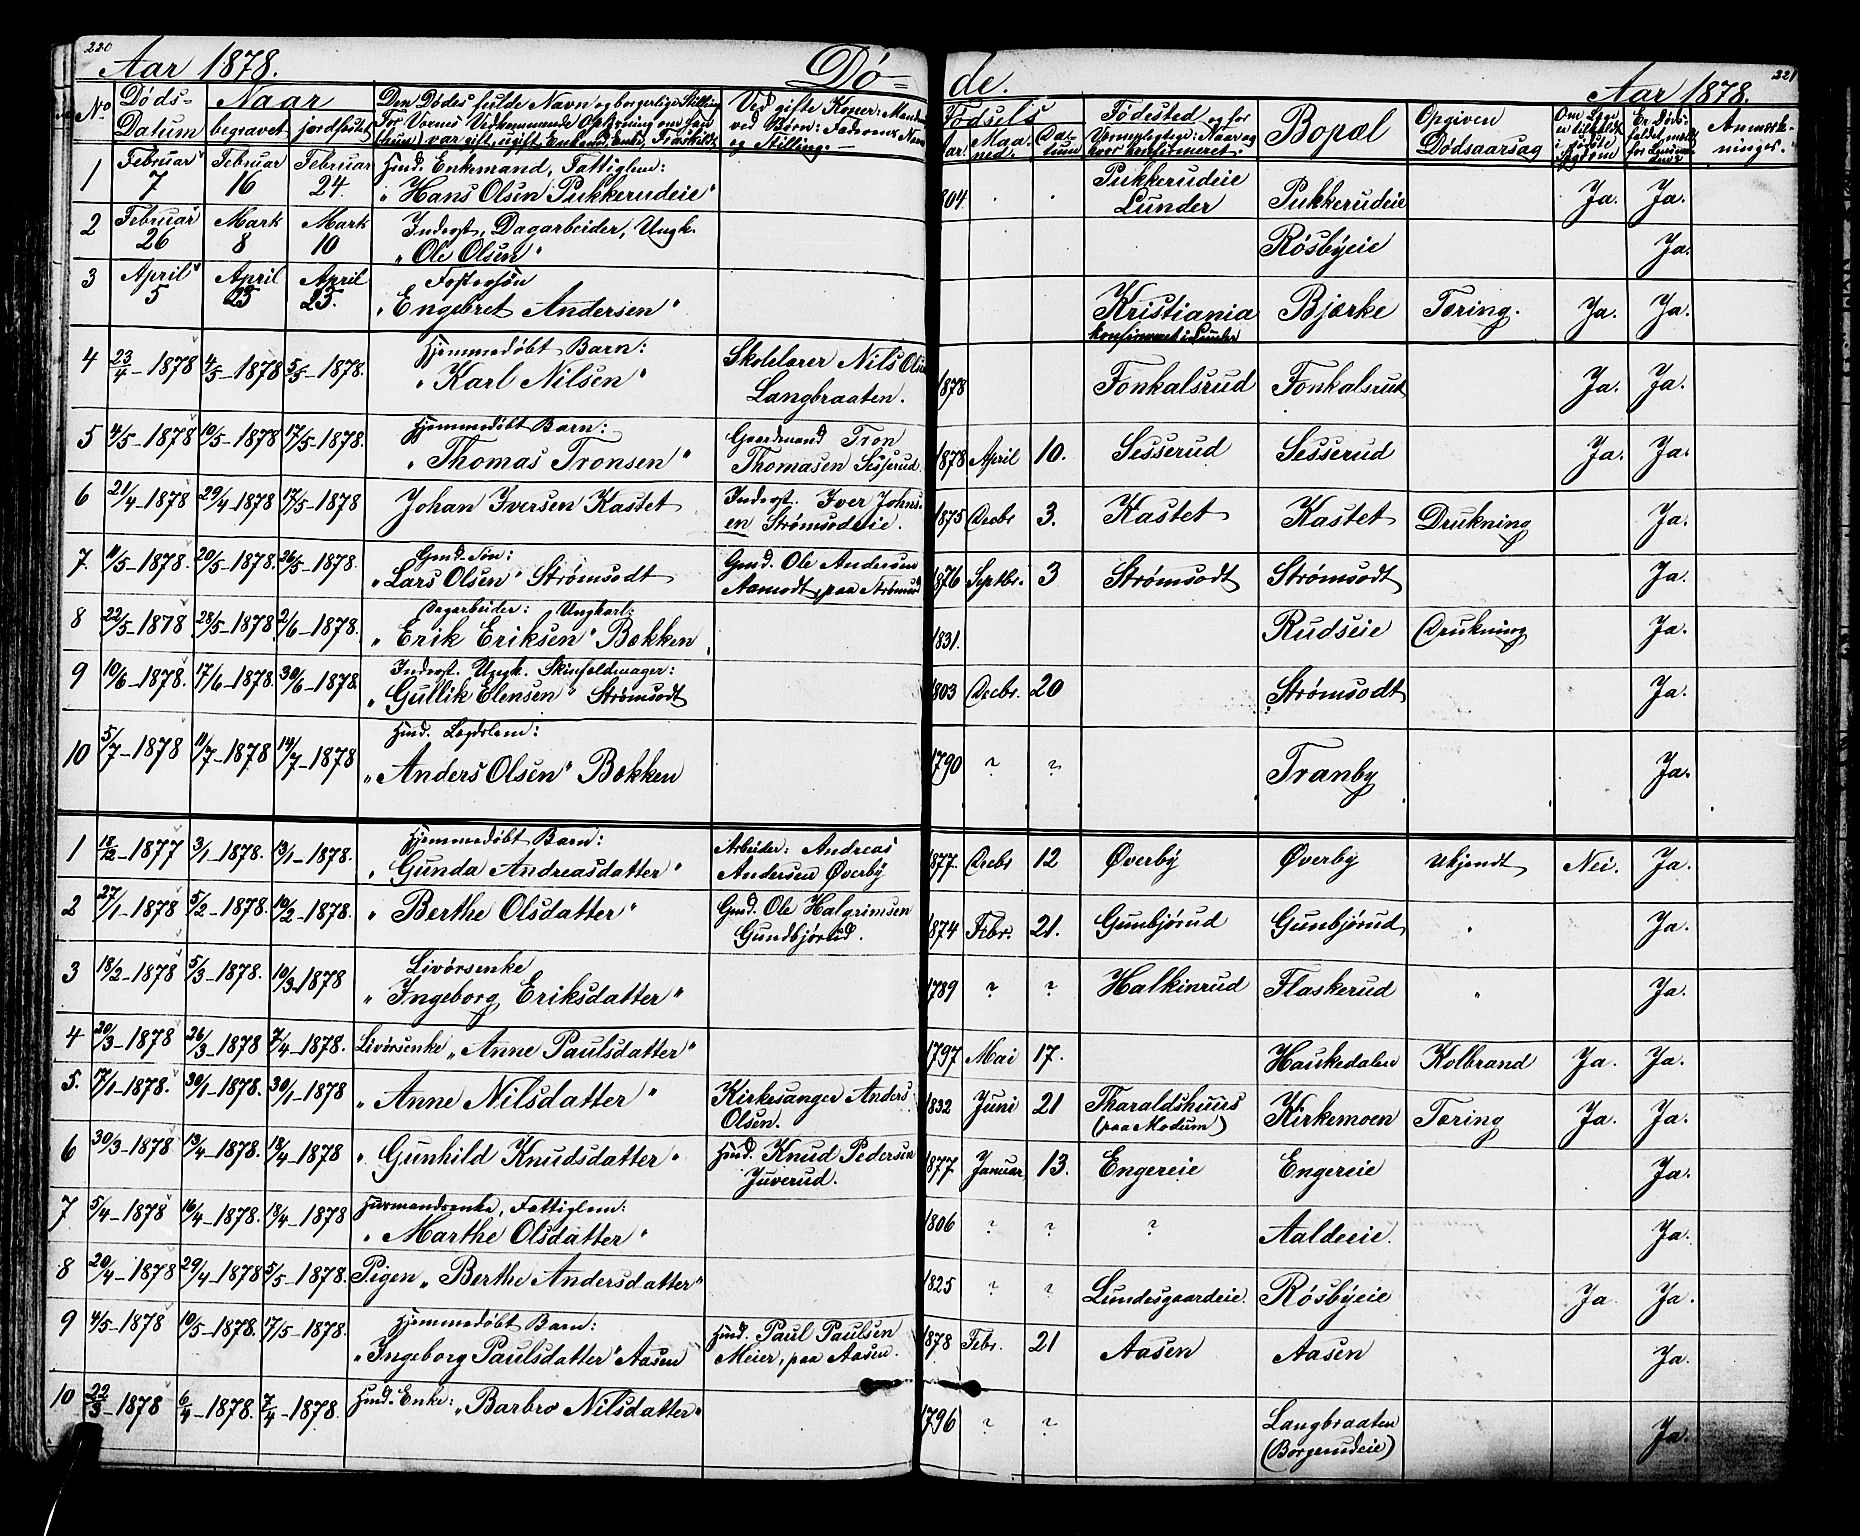 220
Aar 1878.
Dö-
de.
Aar 1878.
221
No
Döds-
Datum
Naar
begravet
jordfæstet
Den Dødes fulde Navn og borgerlige Stilling
For Voxnes Vedkommende Oplysning om han
(hun) var gift, ugift, Enkemd., Enke, Fraskildt
Ved gifte Koner: Mandens
ved Børn: Faderens Navn
og Stilling.
Fødsels
Aar.
Maaned.
Datum
Fødested og for
Bopæl
Opgiven
Dødsaarsag
Om Læge
er tilkaldt
i sidste
Sygdom
Er Døds-
faldet meldt
Anmærk-
ninger.
1 Februar 7 Februar 16 Februar 24 Husmd. Enkemand, Fattiglem:
"Hans Olsen Pukkerudeie" 1804 . . Pukkerudeie Lunder Pukkerudeie Ja. Ja.
2 Februar 26 Marts 8 Marts 10 Inderst, Dagarbeider, Ungk.
"Ole Olsen" Rösbyeie Ja.
3 April 5 April 23 April 23. Fostersön
"Engebret Andersen" Kristiania konfirmeret i Lunder Bjørke Tæring. Ja. Ja.
4 23/4-1878 4/5-1878 5/5-1878. Hjemmedöbt Barn:
"Karl Nilsen" Skolelærer Nils Olsen Langbraaten. 1878 Fonkalsrud Fonkalsrud Ja. Ja.
5 4/5-1878 10/5-1878 17/5-1878. Hjemmedöbt Barn:
"Thomas Tronsen" Gaardmand Tron Thomasen Sesserud. 1878 April 10. Sesserud Sesserud Ja. Ja.
6 21/4-1878 29/4-1878 17/5-1878 Johan Iversen Kastet Inderst. Iver Johnsen Strømsodeie. 1875 Decbr 3. Kastet Kastet Drukning Ja.
7. 11/5-1878. 20/5-1878. 26/5-1878. Gmd. Søn:
"Lars Olsen" Strømsodt Gmd. Ole Andersen Aamodt, paa Strømsod 1876 Septbr. 3 Strømsodt Strømsodt Ja.
8 22/5-1878 28/5-1878 2/6-1878. Dagarbeider: Ungkarl:
"Erik Eriksen" Bækken 1831. Rudseie Drukning Ja.
9 10/6-1878. 17/6-1878. 30/6-1878. Inderst. Ungk. Skinfeldmager:
"Gullik Elensen" Strømsodt 1803 Decbr. 20 Strømsodt Ja.
10 5/7-1878 11/7-1878 14/7-1878 Husmd. Lægdslem:
"Anders Olsen" Bækken 1790 ? ? Tranby Ja.
1 18/12-1877 3/1-1878. 13/1-1878. Hjemmedöbt Barn:
"Gunda Andreasdatter" Arbeider: Andreas Andersen Øverby 1877. Decbr 12 Øverby Øverby Ukjendt Nei. Ja.
2 27/1-1878 5/2-1878. 10/2-1878. "Berthe Olsdatter" Gmd. Ole Halgrimsen Gundbjørud. 1874 Febr. 21. Gunbjørud Gunbjørud " Ja.
3 18/2-1878 5/3-1878. 10/3-1878 Livørsenke
"Ingeborg Eriksdatter" 1789 ? ? Halkinrud Flaskerud " Ja.
4 20/3-1878 26/3-1878 7/4-1878. Livørsenke "Anne Paulsdatter" 1797 Mai 17. Haukedalen Kolbrand Ja. Ja.
5. 17/1-1878. 30/1-1878. 30/1-1878 "Anne Nilsdatter" Kirkesanger Anders Olsen. 1832 Juni 21 Tharaldshuus (paa Modum) Kirkemoen Tæring Ja. Ja.
6 30/3-1878 13/4-1878. 18/4-1878 "Gunhild Knudsdatter" Husmd. Knud Pedersen Juverud. 1877. Januar 13. Engereie Engereie Ja.
7 5/4-1878 16/4-1878. 18/4-1878 Husmandsenke, Fattiglem:
"Marthe Olsdatter" 1806 ? ? ? Aaldeeie. Ja.
8 20/4-1878 29/4-1878 5/5-1878. Pigen "Berthe Andersdatter" 1825 ? ? Lundesgaardeie. Rösbyeie Ja Ja.
9 4/5-1878 10/5-1878. 17/5-1878. Hjemmedöbt Barn:
"Ingeborg Paulsdatter" Aasen Husmd. Paul Paulsen Meier, paa Aasen. 1878 Febr. 21 Aasen Aasen Ja.
10 22/3-1878 6/4-1878. 7/4-1878. Husmd. Enke: "Barbro Nilsdatter" 1796 ? ? Langbraaten (Borgerudeie) Ja.